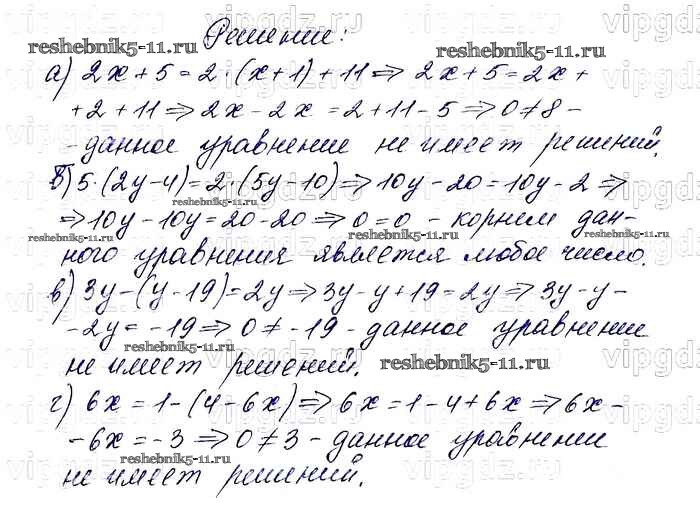 Решение:
а) 2x+5=2·(x+1)+11⇒ 2x+5=2x+
+2+11⇒2x-2x=2+11-5⇒0≠8-
-данное уравнение не имеет решений.
б) 5·(2y-4)=2·(5y-10)⇒10y-20=10y-2⇒
⇒10y-10y=20-20⇒0=0 - корнем дан-
ного уравнения является любое число.
в) 3y-(y-19)=2y⇒3y-y+19=2y⇒3y-y-
-2y=-19⇒0≠-19-данное уравнение
не имеет решений.
г) 6x=1-(4-6x)⇒6x=1-4+6x⇒6x-
-6x=-3⇒0≠3-данное уравнение
не имеет решений.
reshebnik5-11.ru
reshebnik5-11.ru
reshebnik5-11.ru
reshebnik5-11.ru
reshebnik5-11.ru
reshebnik5-11.ru
reshebnik5-11.ru
reshebnik5-11.ru
vipgdz.ru